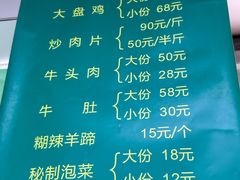 大盘鸡 小份 68元
炒肉片 90元/斤
50元/半斤
牛头肉 大份 50元
小份 28元
牛肚 大份 58元
小份 30元
糊辣羊蹄 15元/个
秘制泡菜 大份 18元
小份 12元